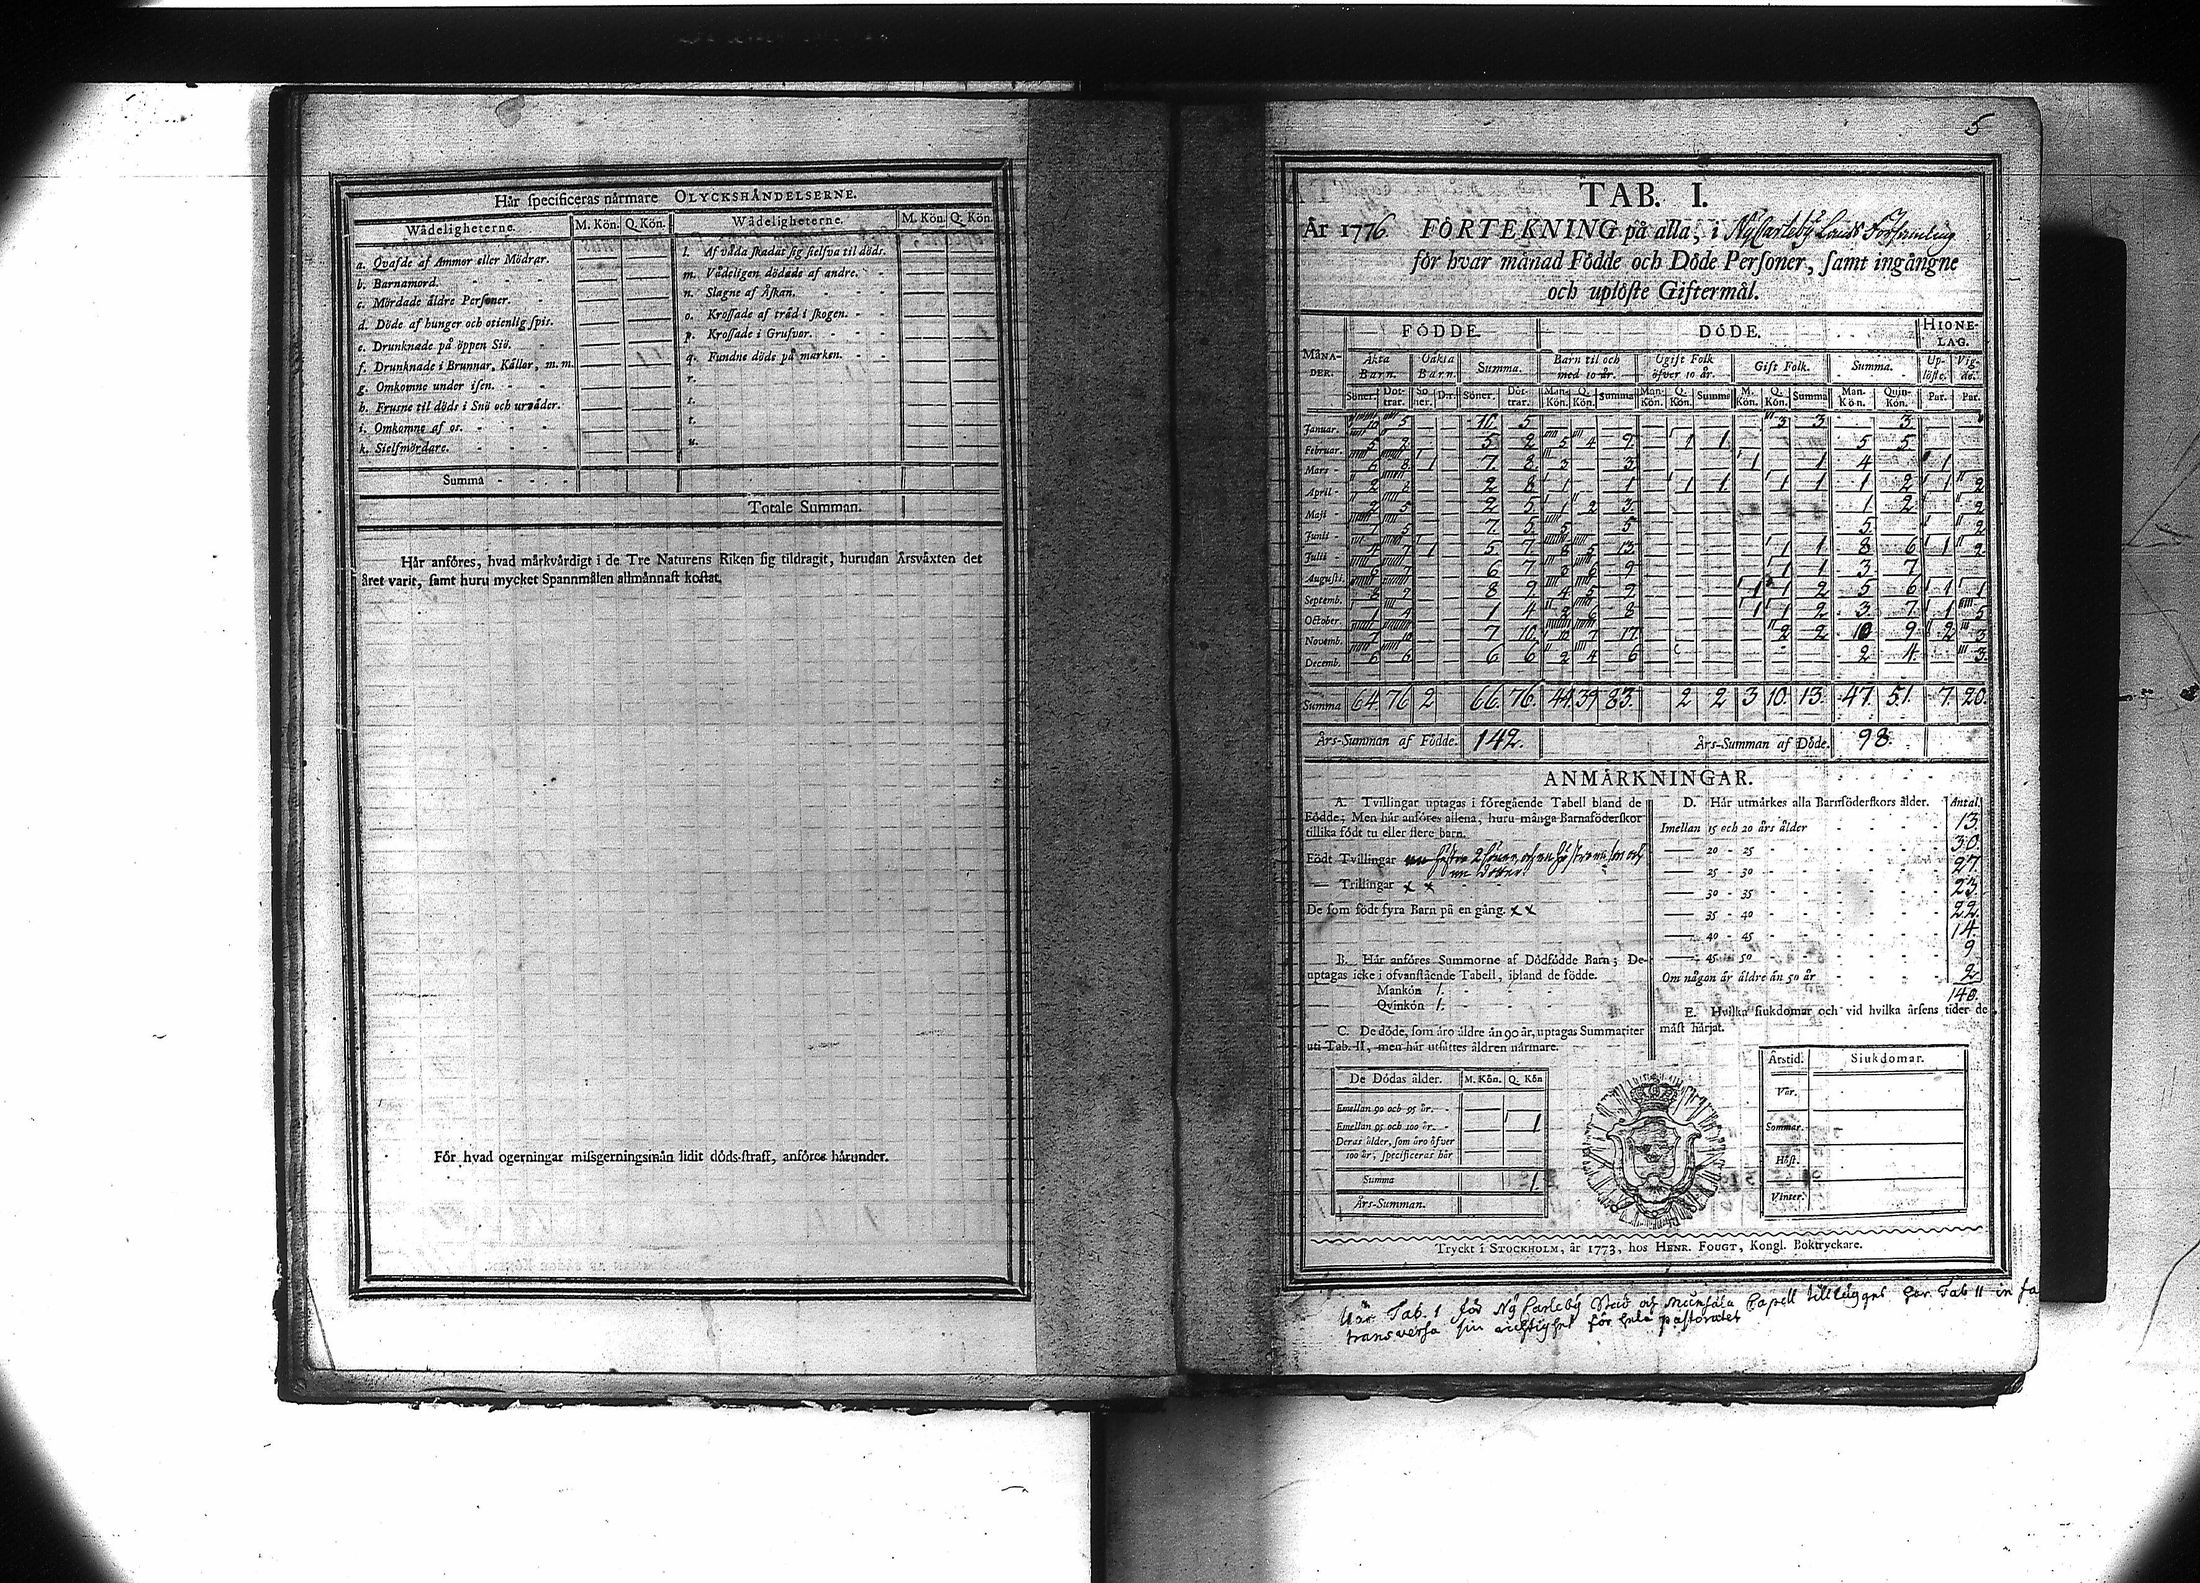 Här specificeras närmare OLYCKSHÄNDELSERNE.
Wådeligheterne. M. Kön. Q. Kön. Wådeligheterne. M. Kön. Q. Kön.
a. Qvafde af Ammor eller Mödrar. — — l. Af våda skadat sig sielfva til döds. — —
b. Barnamord. — — m. Vådeligen dödade af andre. — —
c. Mördade äldre Personer. — — n. Slagne af Åskan. — —
d. Döde af hunger och otienlig spis. — — o. Krossade af träd i skogen. — —
e. Drunknade på öppen Siö. — — p. Krossade i Grufvor. — —
f. Drunknade i Brunnar, Källor, m. m. — — q. Fundne döde på marken. — —
g. Omkomne under isen. — — r. — —
h. Frusne til döds i Snö och urväder. — — s. — —
i. Omkomne af os. — — t. — —
k. Sielfmördare. — — u. — —
Summa
Totale Summan.
Här anföres, hvad märkvärdigt i de Tre Naturens Riken sig tildragit, hurudan Årsväxten det
året varit, samt huru mycket Spannmålen allmännast kostat.
För hvad ogerningar missgerningsmän lidit döds-straff, anföres härunder.
5
TAB. I.
År 1776 FÖRTEKNING på alla, i NyCarleby Lands Församling
för hvar månad Födde och Döde Personer, samt ingångne
och uplöste Giftermål.
FÖDDE. DÖDE. HIONE-LAG.
MÅNA-DER. Äkta Barn. Oäkta Barn. Summa. Barn til och med 10 år. Ogift Folk öfver 10 år. Gift Folk. Summa. Up-löste. Vig-de.
Söner. Döt-trar. Sö-ner. D:r. Söner. Döt-trar. Man-Kön. Q. Kön. Summa Man-Kön. Q. Kön. Summa M. Kön. Q. Kön. Summa Man-Kön. Quin-Kön. Par. Par.
Januar. 10 5 — — 10 5 — — — — — — — 3 3 — 3
Februar. 5 2 — — 5 2 5 4 9 — 1 1 — — — 5 5
Mars - 6 8 1 — 7 8 3 — 3 — — — 1 — 1 4 — 1
April - 2 8 — — 2 8 1 — 1 — 1 1 — 1 1 1 2 1 2
Maji - 2 5 — — 2 5 1 2 3 — — — — — — 1 2 — 2
Junii - 7 5 — — 7 5 5 — 5 — — — — — — 5 — — 2
Julii - 4 7 1 — 5 7 8 5 13 — — — — 1 1 8 6 1 2
Augusti. 6 7 — — 6 7 3 6 9 — — — — 1 1 3 7
Septemb. 8 9 — — 8 9 4 5 9 — — — 1 1 2 5 6 1 1
October. 1 4 — — 1 4 2 6 8 — — — 1 1 2 3 7 1 5
Novemb. 7 10 — — 7 10 10 7 17 — — — — 2 2 10 9 2 3
Decemb. 6 6 — — 6 6 2 4 6 — — — — — — 2 4 — 3
Summa 64 76 2 66. 76. 44. 39 83. 2 2 3 10. 13. 47. 51. 7. 20.
Års-Summan af Födde. 142. Års-Summan af Döde. 98.
ANMÄRKNINGAR.
A. Tvillingar uptagas i föregående Tabell bland de
Födde; Men här anföres allena, huru många Barnaföderskor
tillika födt tu eller flere barn.
Födt Tvillingar en hustru 2 söner och en hustru en son och
en Dotter.
— Trillingar x x
De som födt fyra Barn på en gång. x x
B. Här anföres Summorne af Dödfödde Barn; De
uptagas icke i ofvanstående Tabell, ibland de födde.
Mankön 1.
Qvinkön 1.
C. De döde, som äro äldre än 90 år, uptagas Summariter
uti Tab. II, men här utsättes åldren närmare.
De Dödas ålder. M. Kön. Q. Kön
Emellan 90 och 95 år. — —
Emellan 95 och 100 år. — 1
Deras ålder, som äro öfver
100 år, specificeras här — —
Summa 1.
Års-Summan.
D. Här utmärkes alla Barnföderskors ålder. Antal.
Imellan 15 och 20 års ålder 13.
— 20 - 25 30.
— 25 - 30 27.
— 30 - 35 23.
— 35 - 40 22.
— 40 - 45 14.
— 45 50 9
Om någon är äldre än 50 år 2
140.
E. Hvilka siukdomar och vid hvilka årsens tider de
mäst härjat.
Årstid. Siukdomar.
Vår.
Sommar.
Höst.
Vinter.
Tryckt i STOCKHOLM, år 1773, hos HENR. FOUGT, Kongl. Boktryckare.
När Tab. 1 för Ny Carleby Stad och Munsala Capell tillägges har Tab II in fa
transversa sin richtighet för hela pastoratet